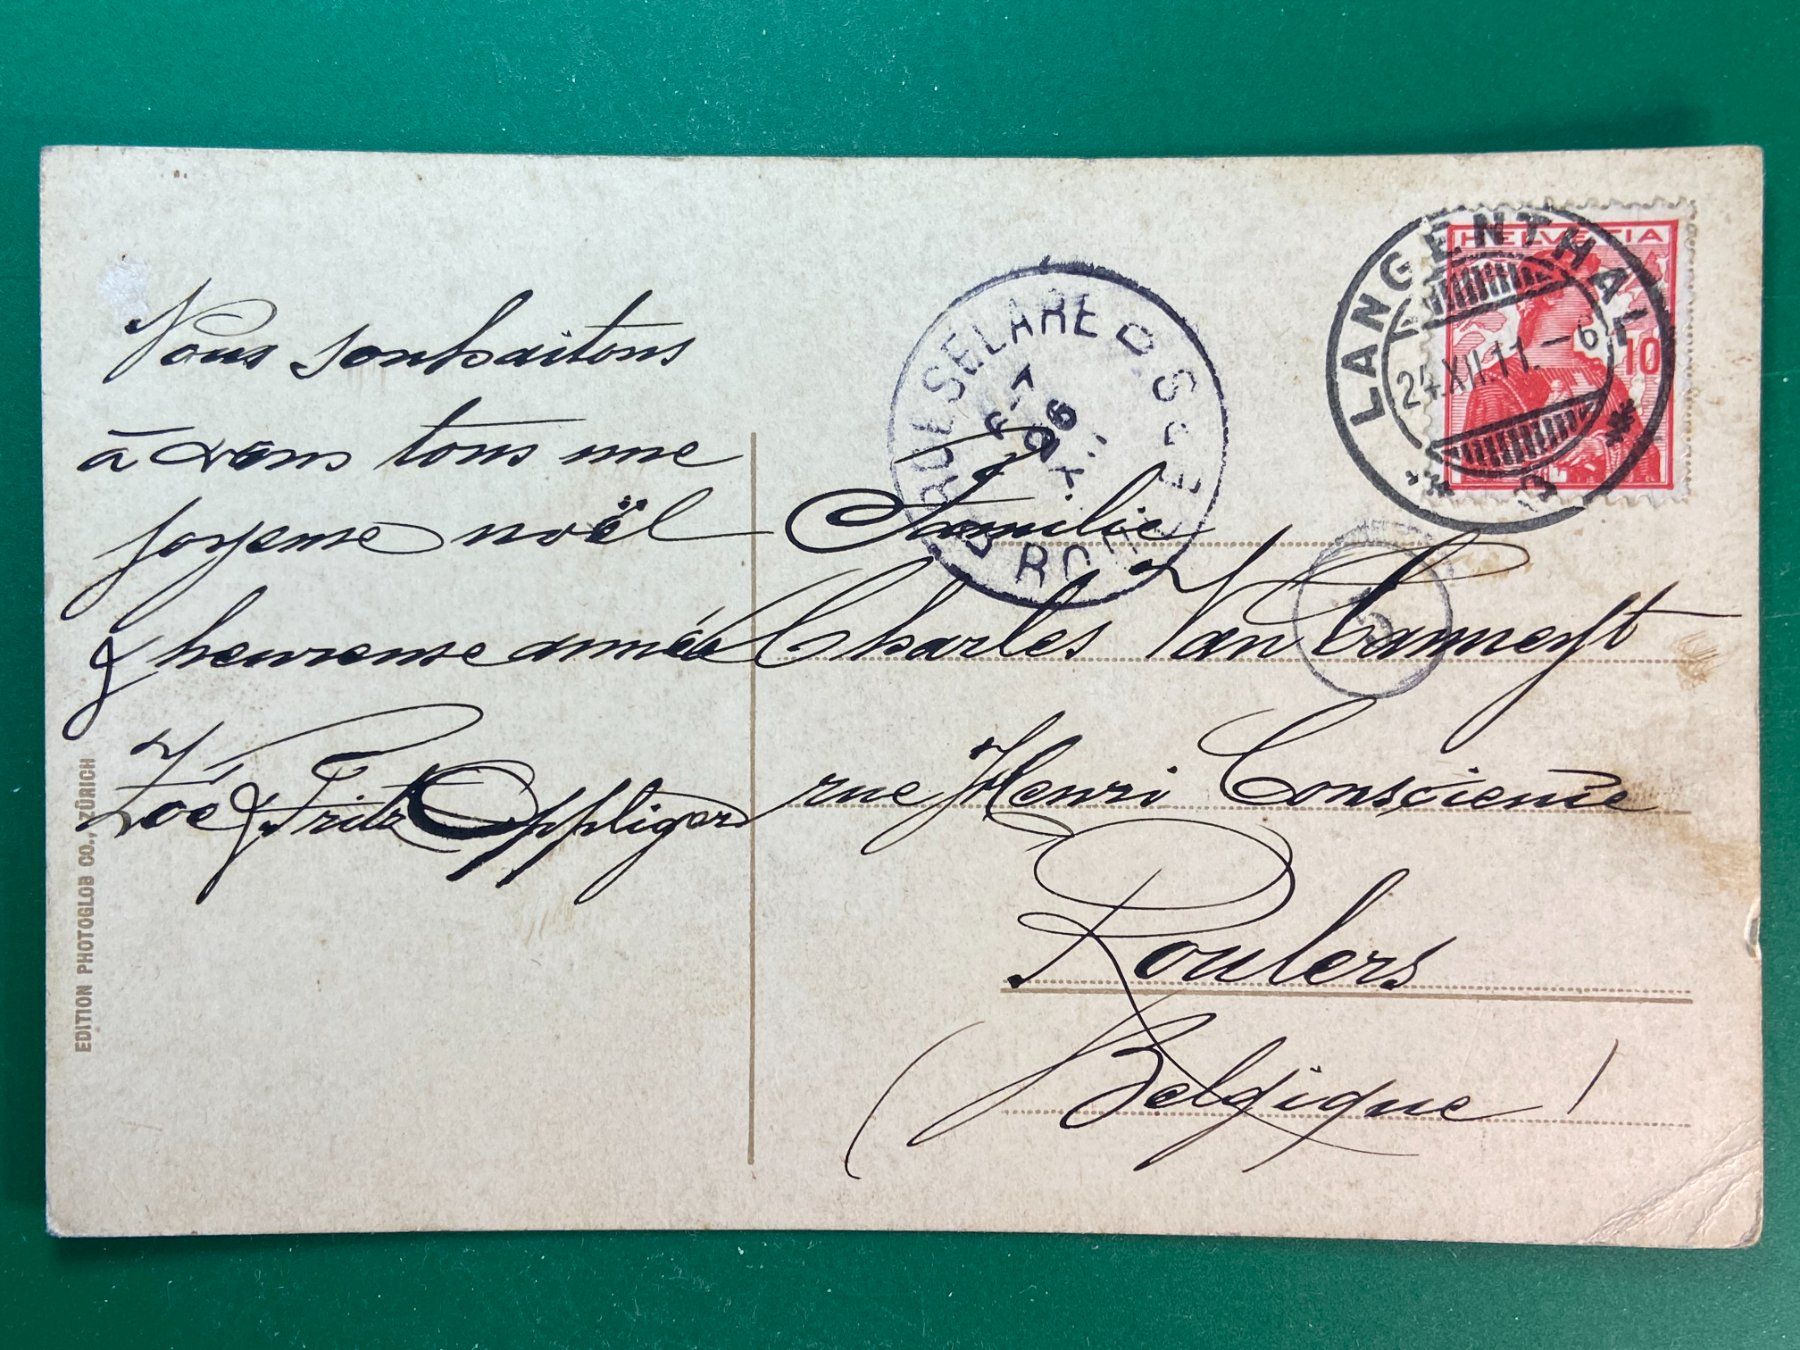 Vous souhaitons
à vous tous une
joyeuse noël
& heureuse année
Zoé & Fritz Oppliger
EDITION PHOTOGLOB CO., ZÜRICH
ROUSSELARE D. Sc E
6-7
26
XII
ROU
HELVETIA
10
LANGENTHAL
24.XII.11.-6
5
Famille
Charles Van
rue Henri Conscience
Roulers
(Belgique)